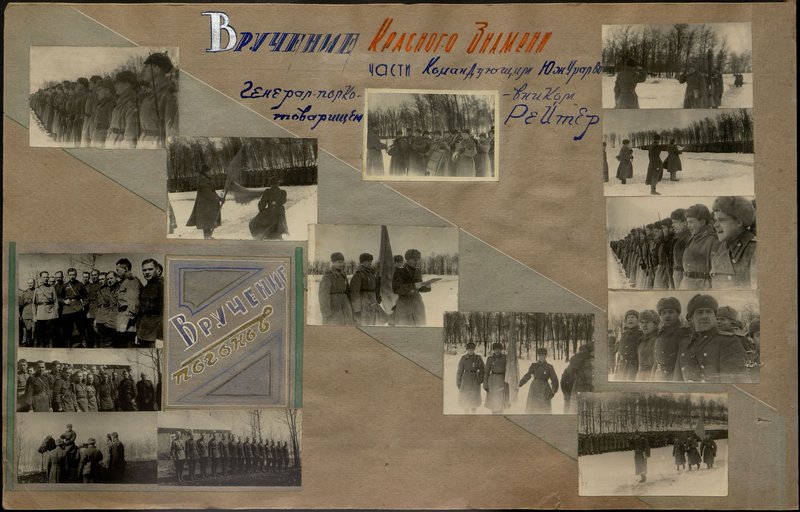 Вручение Красного Знамени
части Командующим ЮжУралВо
Генерал-полко-
-вником
товарищем
Рейтер
Вручение
погонов